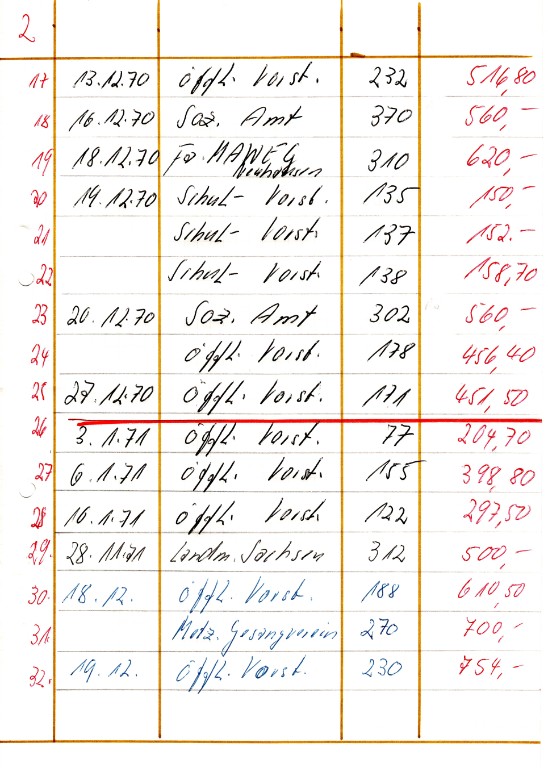 2
17 13.12.70 öffl. Vorst. 232 516,80
18 16.12.70 Soz. Amt 370 560,-
19 18.12.70 Fa. MAWEG Neuhausen 310 620,-
20 19.12.70 Schul- Vorst. 135 150,-
21 Schul- Vorst. 137 152.-
22 Schul- Vorst. 138 158,70
23 20.12.70 Soz. Amt 302 560,-
24 öffl. Vorst. 178 456,40
25 27.12.70 Öffl. Vorst. 171 451,50
26 3.1.71 Öffl. Vorst. 77 204,70
27 6.1.71 Öffl. Vorst. 155 398,80
28 10.1.71 Öffl. Vorst. 122 297,50
29. 28.11.71 Landm. Sachsen 312 500,-
30. 18.12. Öffl. Vorst. 188 610,50
31 Metz. Gesangverein 270 700,-
32. 19.12. Öffl. Vorst. 230 754,-